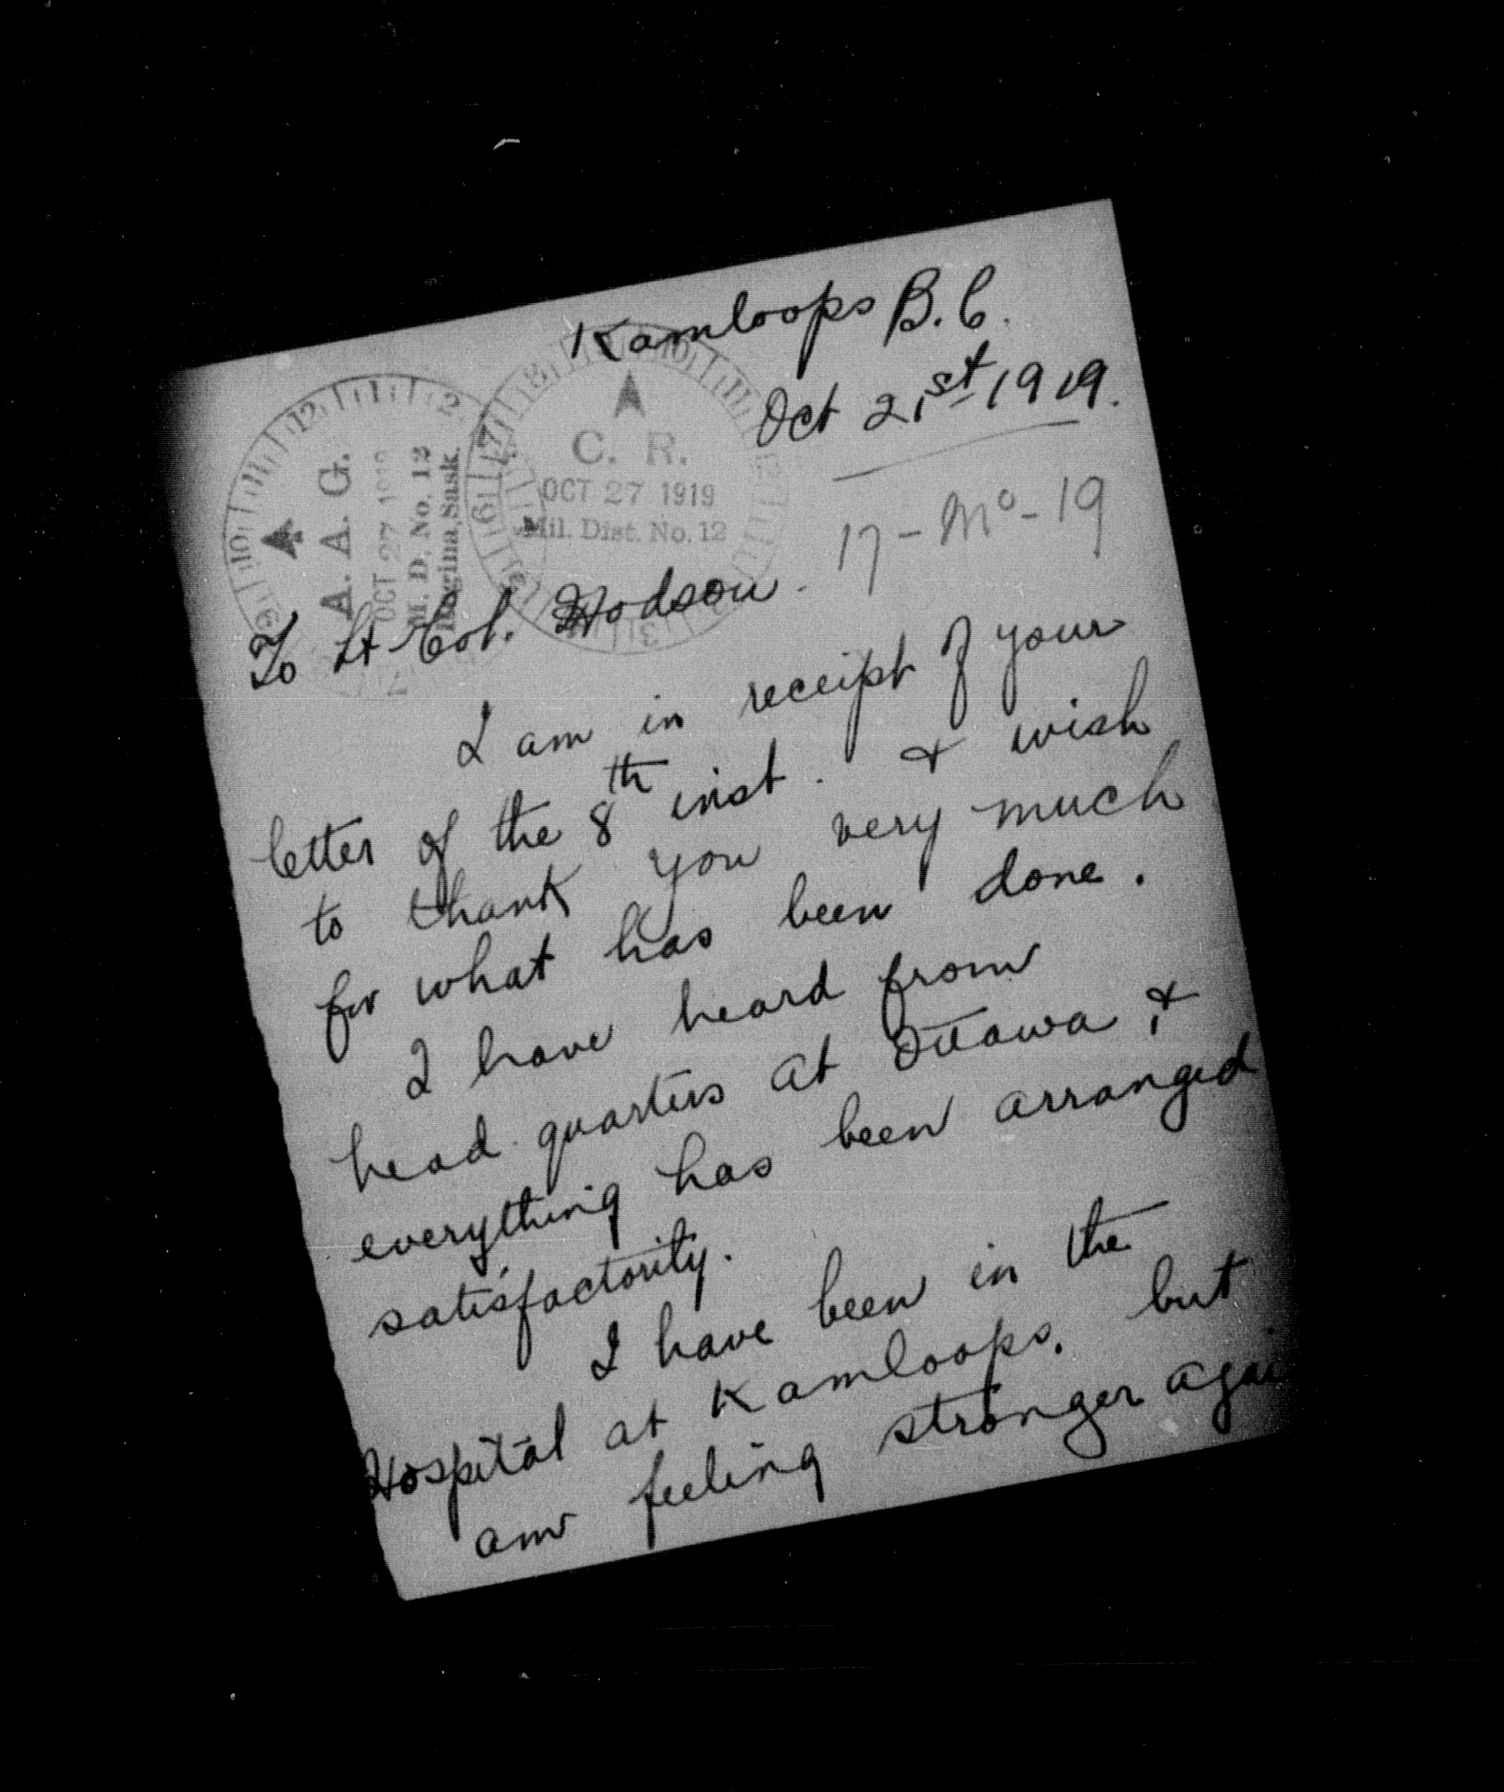 Kamloops B.C.
Oct 21st 1919.
A. A. G.
OCT 27 1919
M. D. No. 12
Regina, Sask.
C. R.
OCT 27 1919
Mil. Dist. No. 12
17-Mc-19
To Lt Col. Hodson.
I am in receipt of your
letter of the 8th inst. & wish
to thank you very much
for what has been done.
I have heard from
head quarters at Ottawa &
everything has been arranged
satisfactority.
I have been in the
Hospital at Kamloops. but
am feeling stronger agai